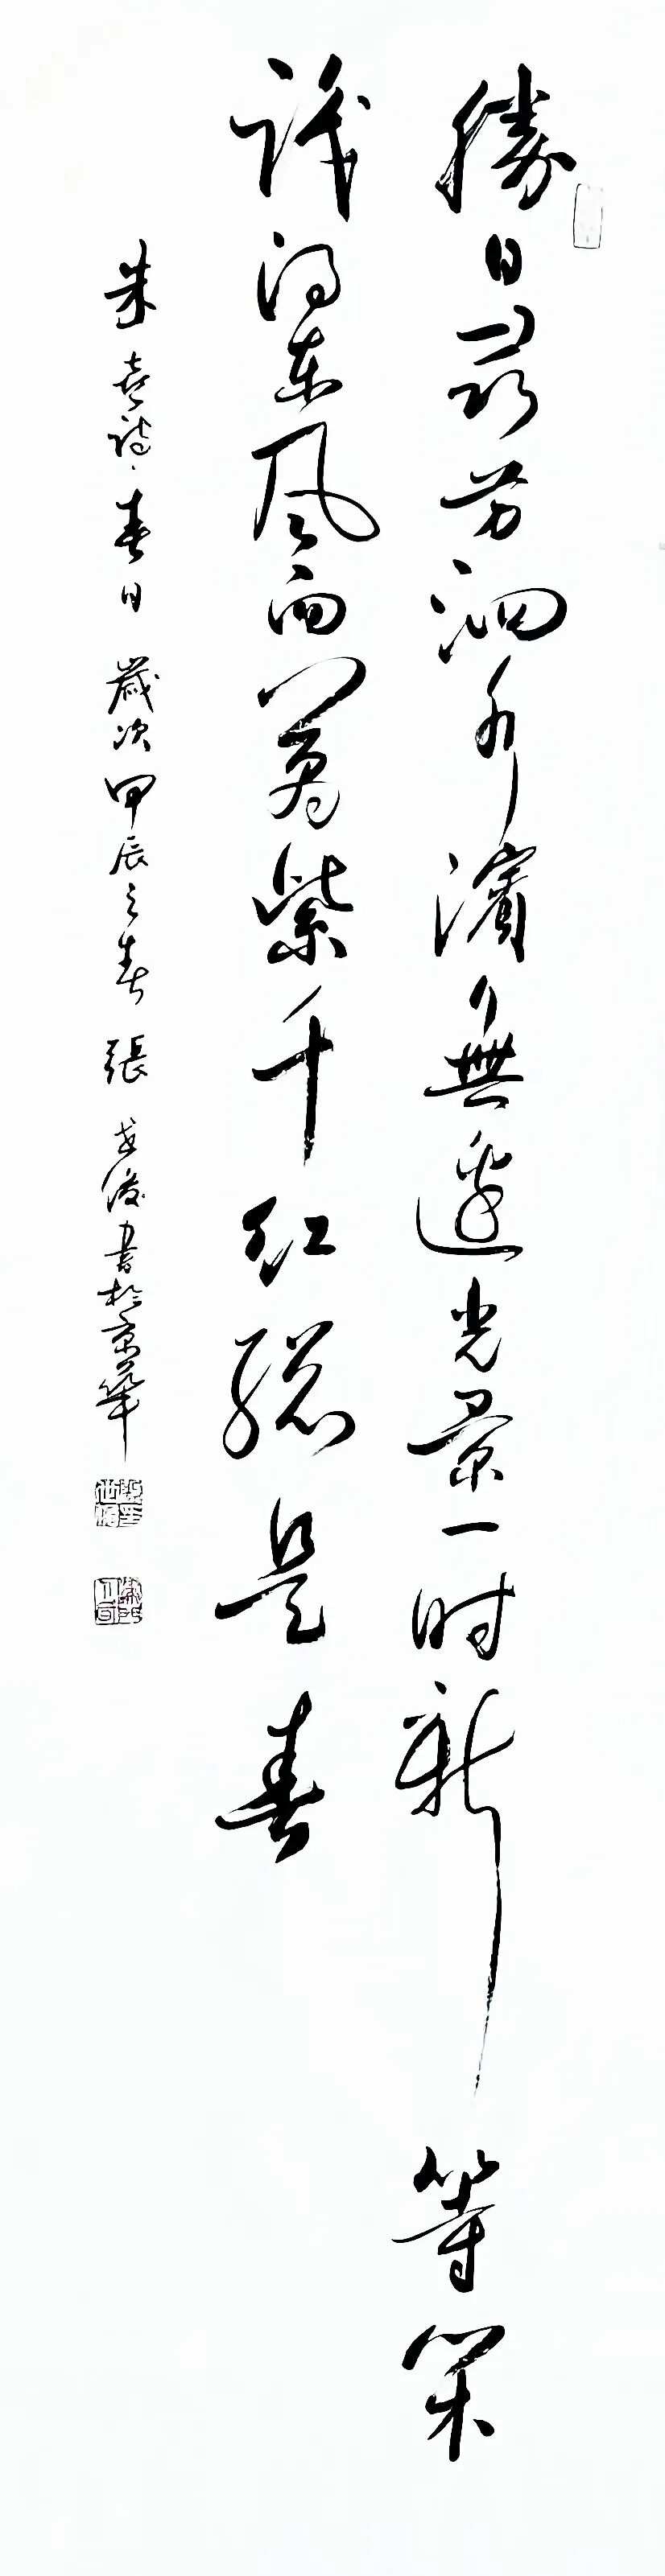 勝日尋芳泗水濱無邊光景一时新等閑
識得東風面萬紫千红總是春
朱熹詩春日 歲次甲辰之春 張 俊書於京華